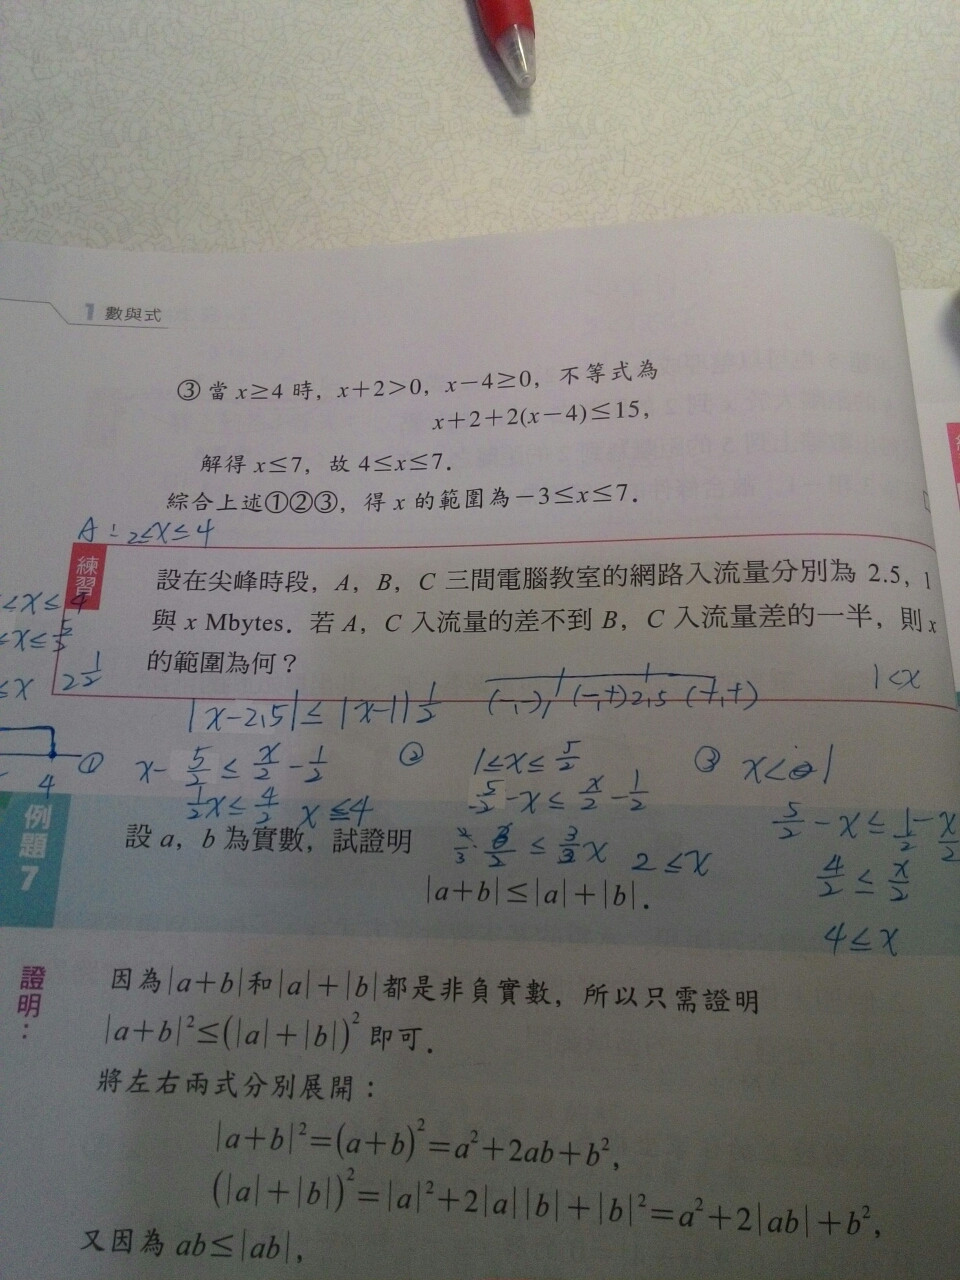 1 數與式
③ 當 x≥4 時，x+2>0，x-4≥0，不等式為
x+2+2(x-4)≤15，
解得 x≤7，故 4≤x≤7．
綜合上述①②③，得 x 的範圍為-3≤x≤7．
A： 2≤x≤4
練習
設在尖峰時段，A，B，C 三間電腦教室的網路入流量分別為 2.5，1
與 x Mbytes．若 A，C 入流量的差不到 B，C 入流量差的一半，則 x
的範圍為何？
<x≤4
≤x≤5/2
≤x 2 1/2
1<x
|x-2,5|≤|x-1| 1/2 (-,-) (-,+) 2,5 (+,+)
4
① x-5/2≤x/2-1/2
1/2x≤4/2 x≤4
② 1≤x≤5/2
5/2-x≤x/2-1/2
≤3/2x 2≤x
③ x<1
5/2-x≤1/2-x/2
4/2≤x/2
4≤x
例題7
設 a，b 為實數，試證明
|a+b|≤|a|+|b|．
證明：
因為|a+b|和|a|+|b|都是非負實數，所以只需證明
|a+b|²≤(|a|+|b|)² 即可．
將左右兩式分別展開：
|a+b|²=(a+b)²=a²+2ab+b²，
(|a|+|b|)²=|a|²+2|a||b|+|b|²=a²+2|ab|+b²，
又因為 ab≤|ab|，